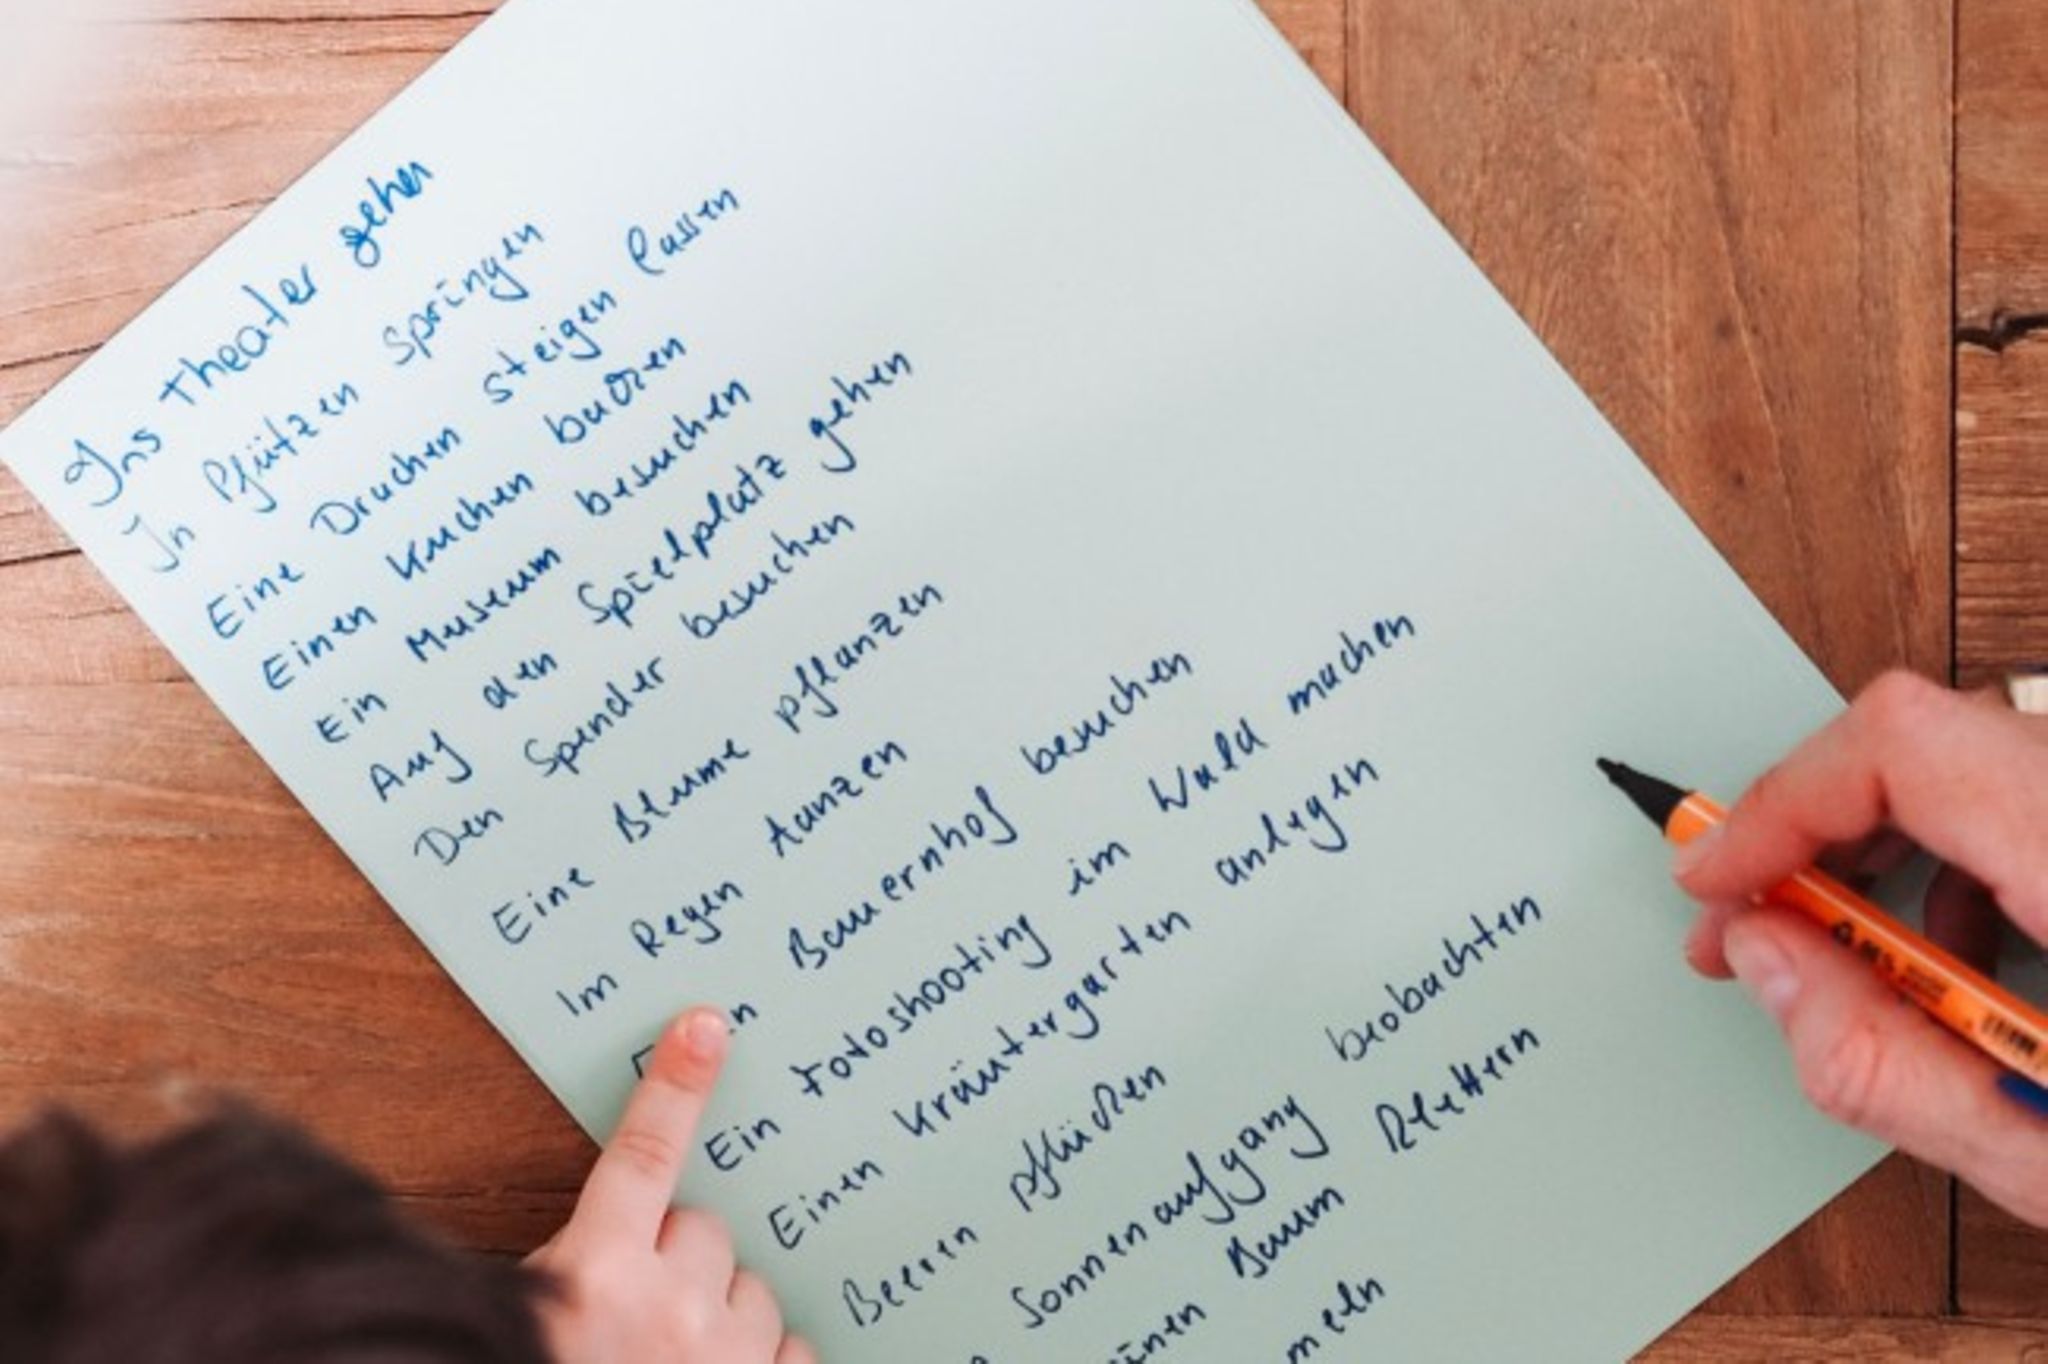 Ins Theater gehen
In Pfützen springen
Eine Drachen steigen lassen
Einen Kuchen backen
Ein Museum besuchen
Auf den Spielplatz gehen
Den Spender besuchen
Eine Blume pflanzen
Im Regen tanzen
Bauernhof besuchen
Ein Fotoshooting im Wald machen
Einen Kräutergarten anlegen
Beeren pflücken
Sonnenaufgang beobachten
Baum klettern